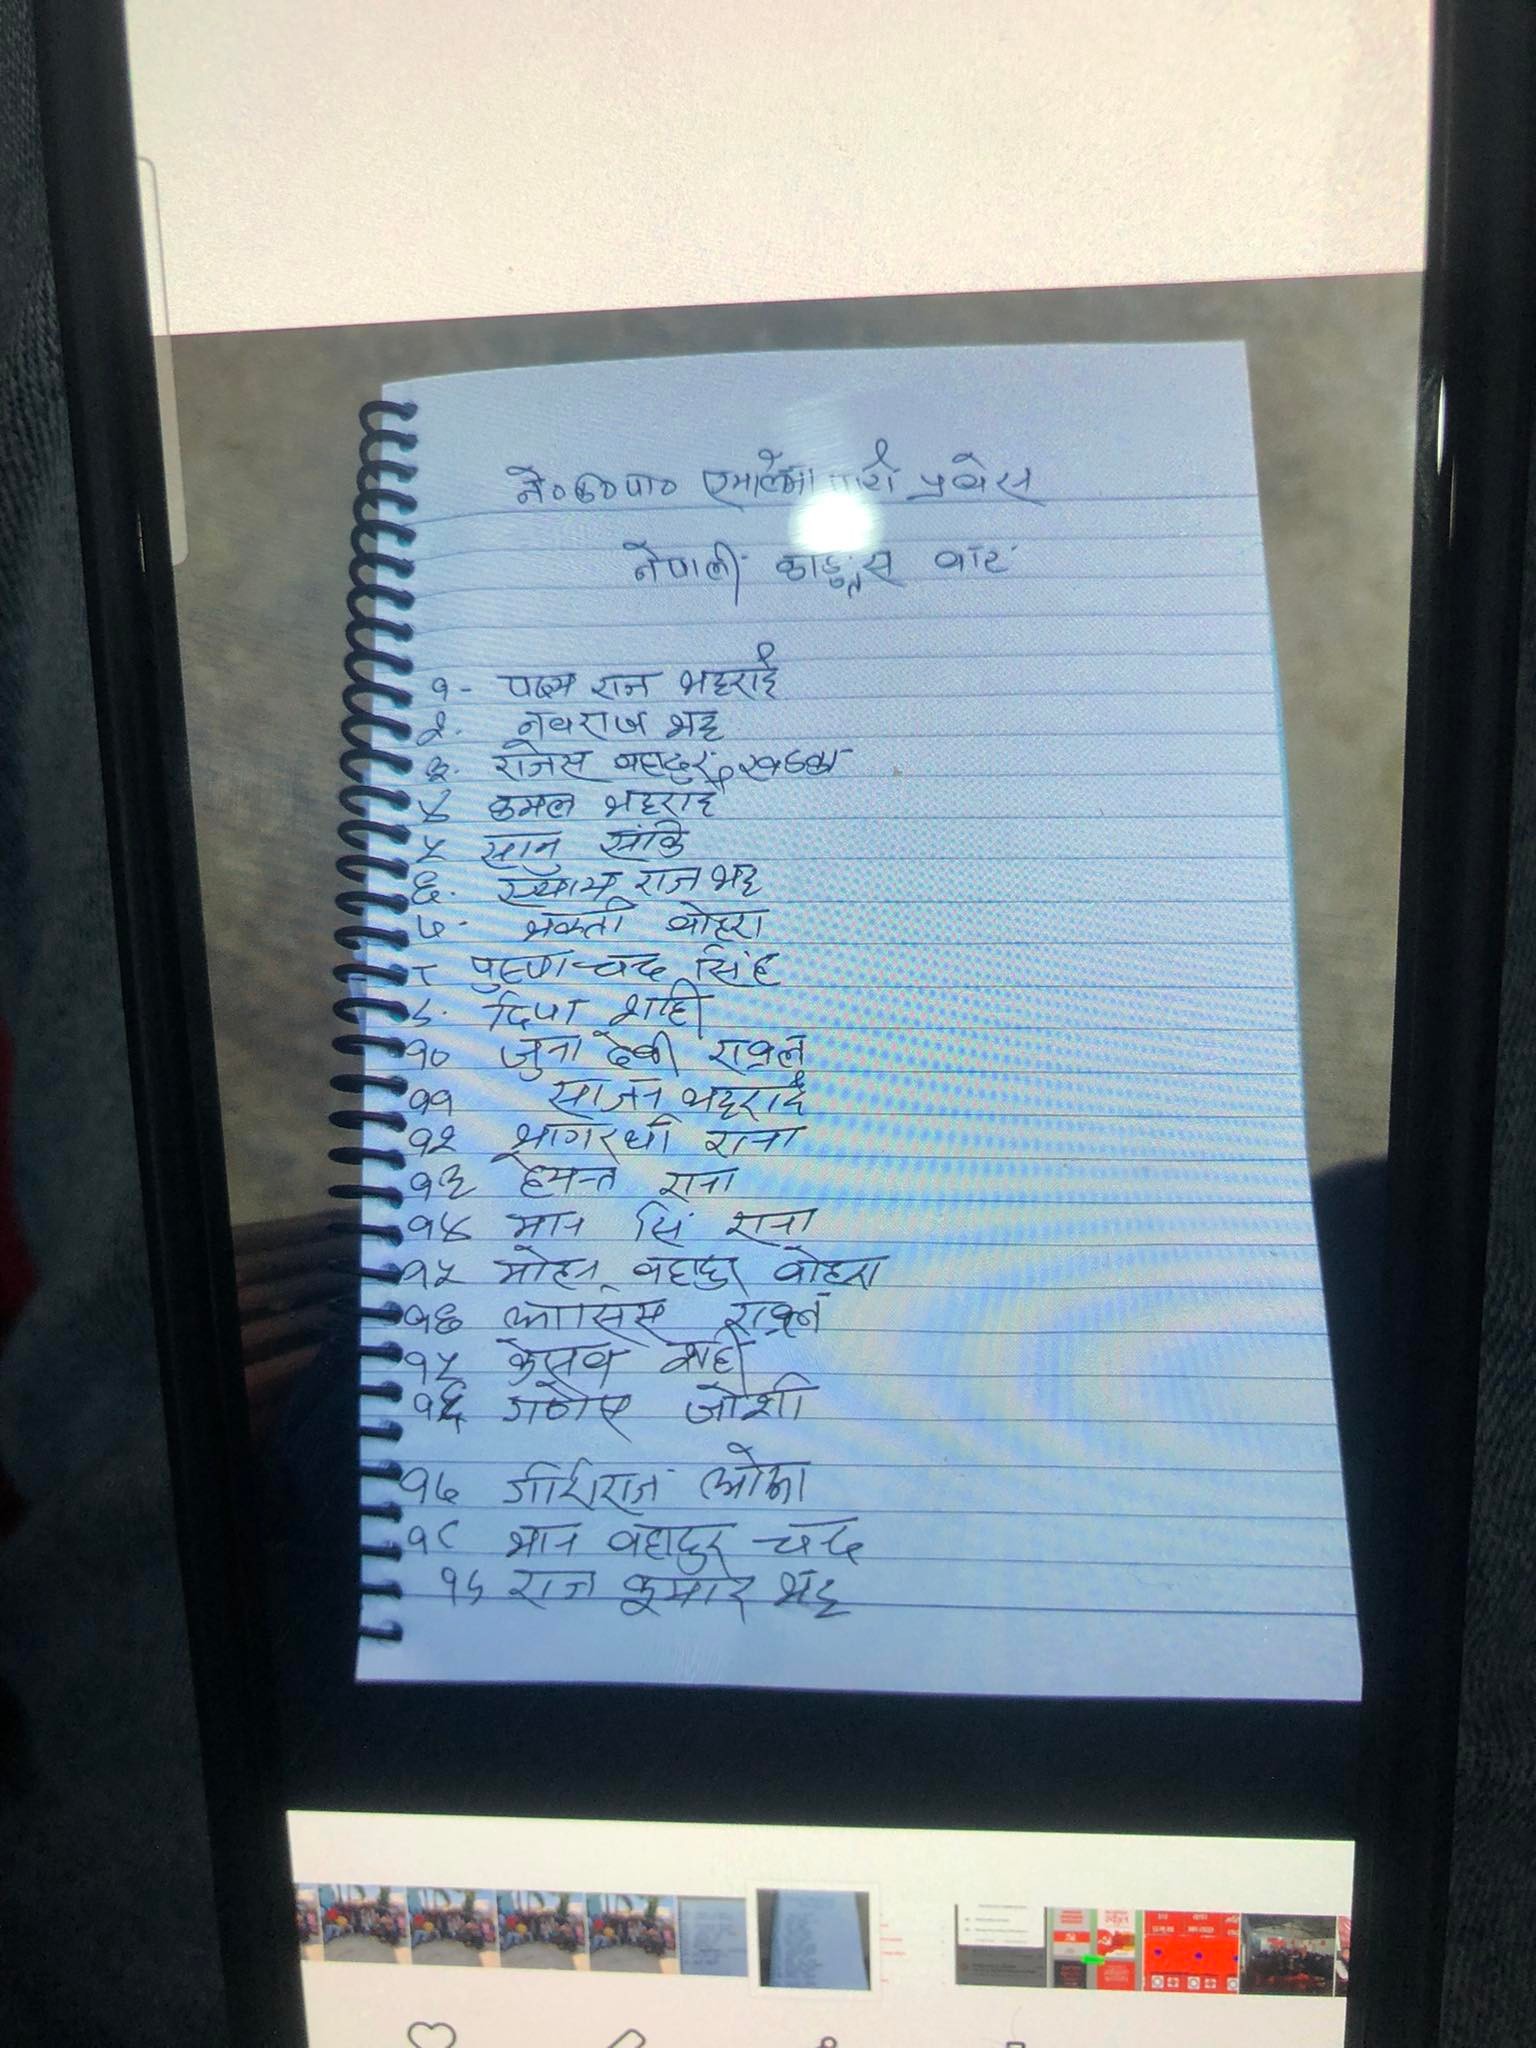 ने०क०पा० एमालेमा पार्टी प्रवेस
नेपाली काङ्ग्रेस बाट
१- पदम राज भट्टराई
२. नवराज भट्ट
३. राजेस बहादुर खडका
४ कमल भट्टराई
५ सानु सार्कि
६. श्याम राज भट्ट
७. भक्ती वोहरा
८ पुर्णचन्द सिंह
९. दिपा शाही
१० जुना देवी रावल
११ साजन भट्टराई
१२ भागरथी राना
१३ हेमन्त राना
१४ मान सिं राना
१५ मोहन बहादुर वोहरा
१६ आसिस रावल
१५ केसव शाही
१६ गणेस जोशी
१७ ओझा
१८ भान बहादुर चन्द
१९ राज कुमार भट्ट